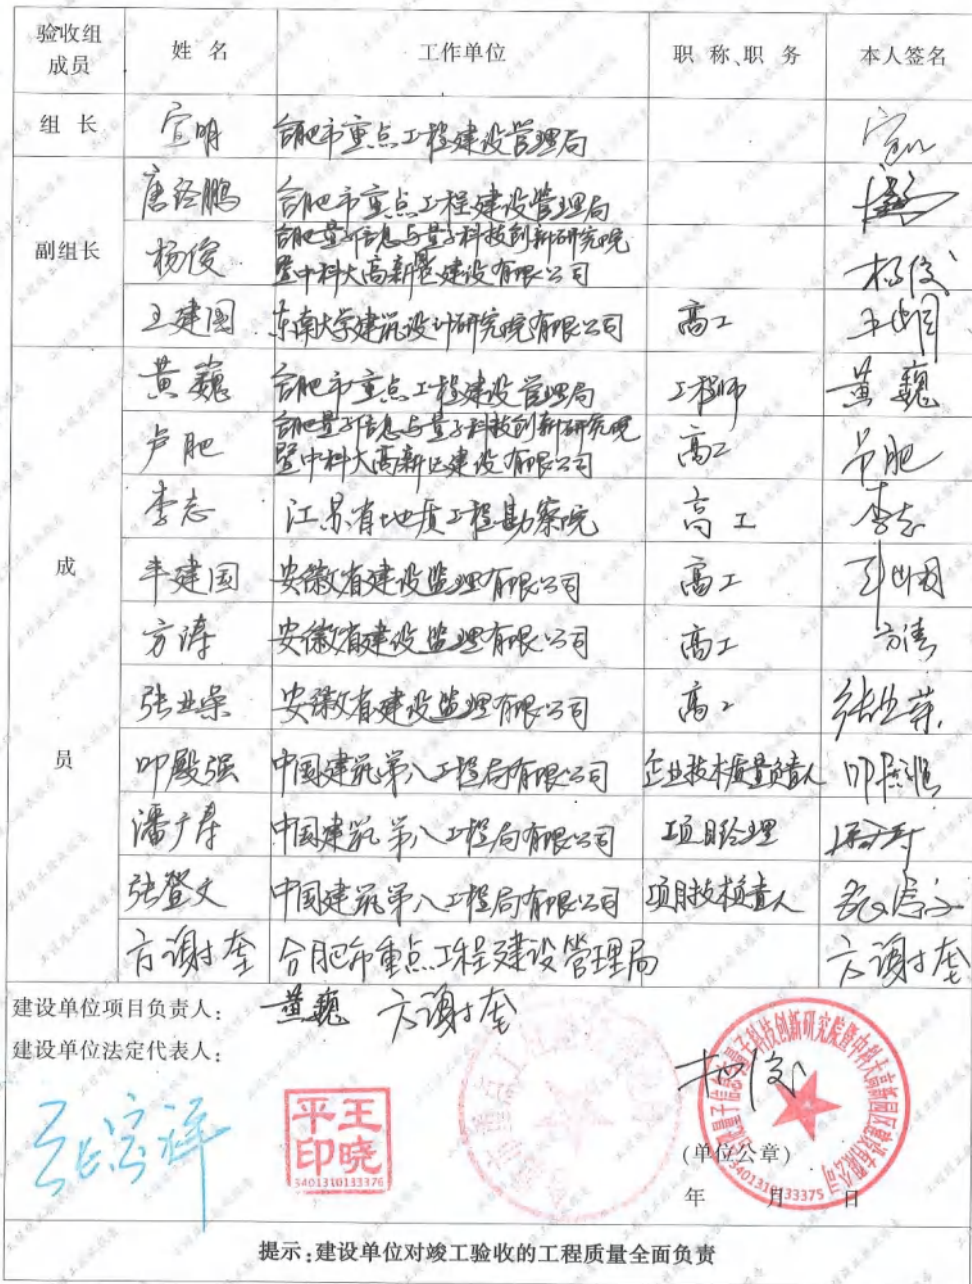 验收组成员 姓 名 工作单位 职 称、职 务 本人签名
组 长 宣明 合肥市重点工程建设管理局
副组长
唐经鹏 合肥市重点工程建设管理局
杨俊 合肥量子信息与量子科技创新研究院 杨俊
暨中科大高新区建设有限公司
王建国 东南大学建筑设计研究院有限公司 高工
成员
黄巍 合肥市重点工程建设管理局 工程师 黄巍
卢肥 合肥量子信息与量子科技创新研究院 高工 卢肥
暨中科大高新区建设有限公司
李志 江苏省地质工程勘察院 高工 李志
丰建国 安徽省建设监理有限公司 高工
方涛 安徽省建设监理有限公司 高工 方涛
张业荣 安徽省建设监理有限公司 高工 张业荣
叩殿强 中国建筑第八工程局有限公司 企业技术质量负责人 叩殿强
潘广存 中国建筑第八工程局有限公司 项目经理
张登文 中国建筑第八工程局有限公司 项目技术负责人
方谢奎 合肥市重点工程建设管理局 方谢奎
建设单位项目负责人： 黄巍 方谢奎
建设单位法定代表人：
杨俊
平王
印晓
3401310133376
量子信息与量子科技创新研究院暨中科大高新区建设有限公司
3401310133375
(单位公章)
年 月 日
提示：建设单位对竣工验收的工程质量全面负责